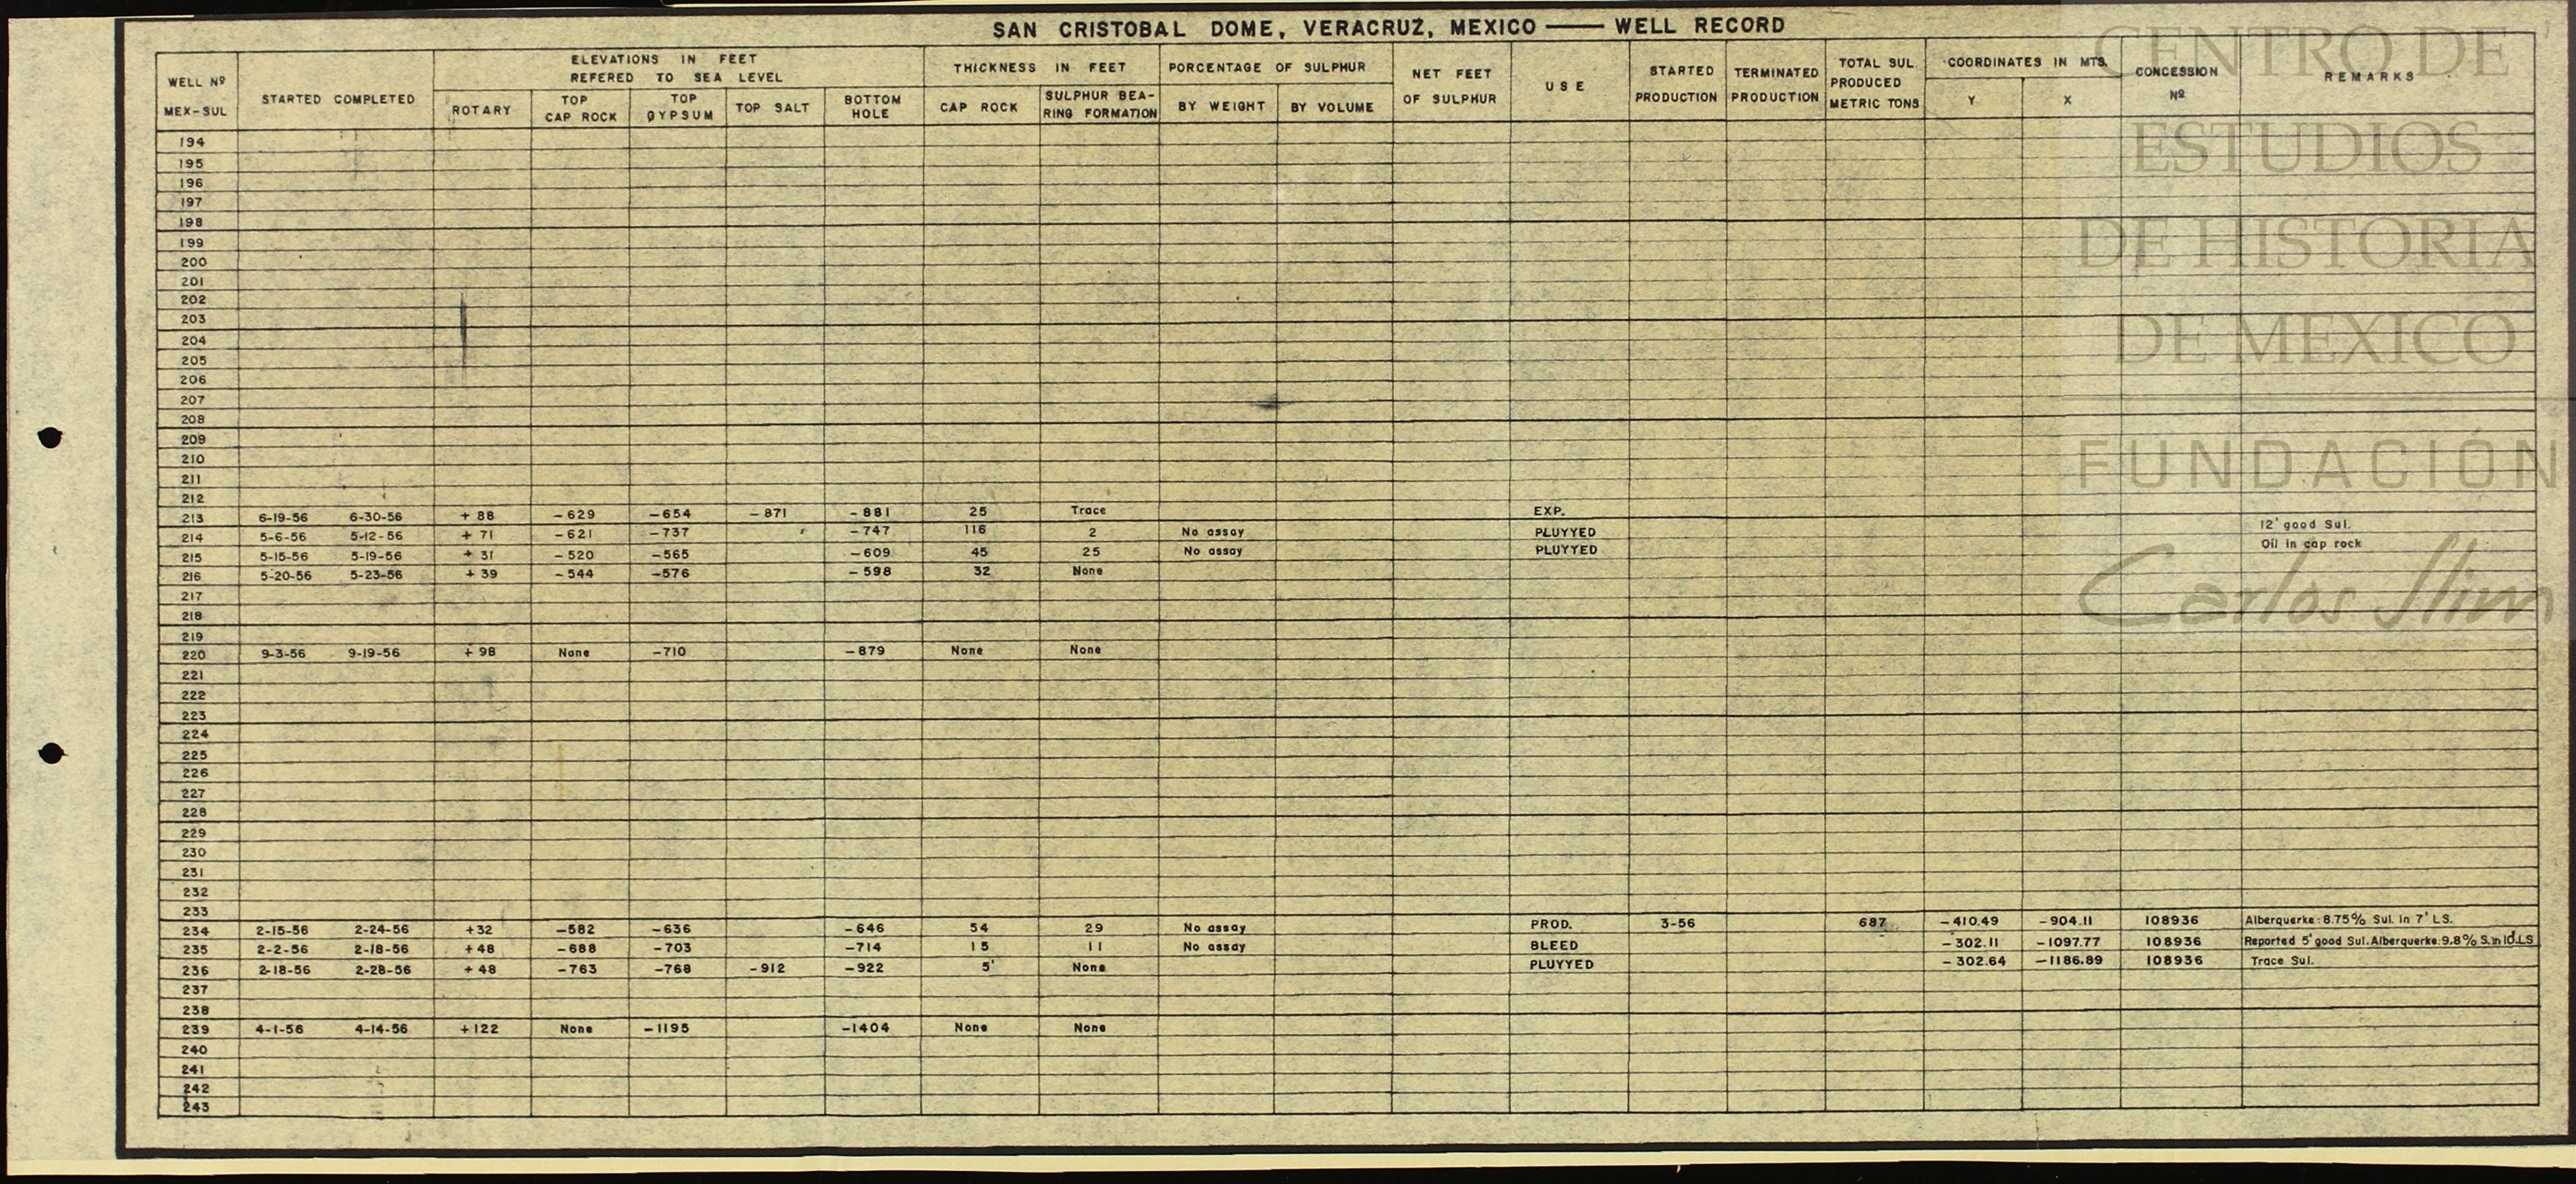 SAN CRISTOBAL DOME, VERACRUZ, MEXICO — WELL RECORD
WELL Nº MEX-SUL
STARTED COMPLETED
ELEVATIONS IN FEET REFERED TO SEA LEVEL
ROTARY
TOP CAP ROCK
TOP GYPSUM
TOP SALT
BOTTOM HOLE
THICKNESS IN FEET
CAP ROCK
SULPHUR BEA-RING FORMATION
PORCENTAGE OF SULPHUR
BY WEIGHT
BY VOLUME
NET FEET OF SULPHUR
USE
STARTED PRODUCTION
TERMINATED PRODUCTION
TOTAL SUL PRODUCED METRIC TONS
COORDINATES IN MTS.
Y
X
CONCESSION Nº
REMARKS
194
195
196
197
198
199
200
201
202
203
204
205
206
207
208
209
210
211
212
213 6-19-56 6-30-56 +88 -629 -654 -871 -881 25 Trace EXP.
214 5-6-56 5-12-56 +71 -621 -737 -747 116 2 No assay PLUYYED 12' good Sul.
215 5-15-56 5-19-56 +31 -520 -565 -609 45 25 No assay PLUYYED Oil in cap rock
216 5-20-56 5-23-56 +39 -544 -576 -598 32 None
217
218
219
220 9-3-56 9-19-56 +98 None -710 -879 None None
221
222
223
224
225
226
227
228
229
230
231
232
233
234 2-15-56 2-24-56 +32 -582 -636 -646 54 29 No assay PROD. 3-56 687 -410.49 -904.11 108936 Alberquerke: 8.75% Sul. in 7' LS.
235 2-2-56 2-18-56 +48 -688 -703 -714 15 11 No assay BLEED -302.11 -1097.77 108936 Reported 5' good Sul. Alberquerke: 9.8% S. in 10' LS
236 2-18-56 2-28-56 +48 -763 -768 -912 -922 5' None PLUYYED -302.64 -1186.89 108936 Trace Sul.
237
238
239 4-1-56 4-14-56 +122 None -1195 -1404 None None
240
241
242
243
CENTRO DE
ESTUDIOS
DE HISTORIA
DE MEXICO
FUNDACIÓN
Carlos Slim